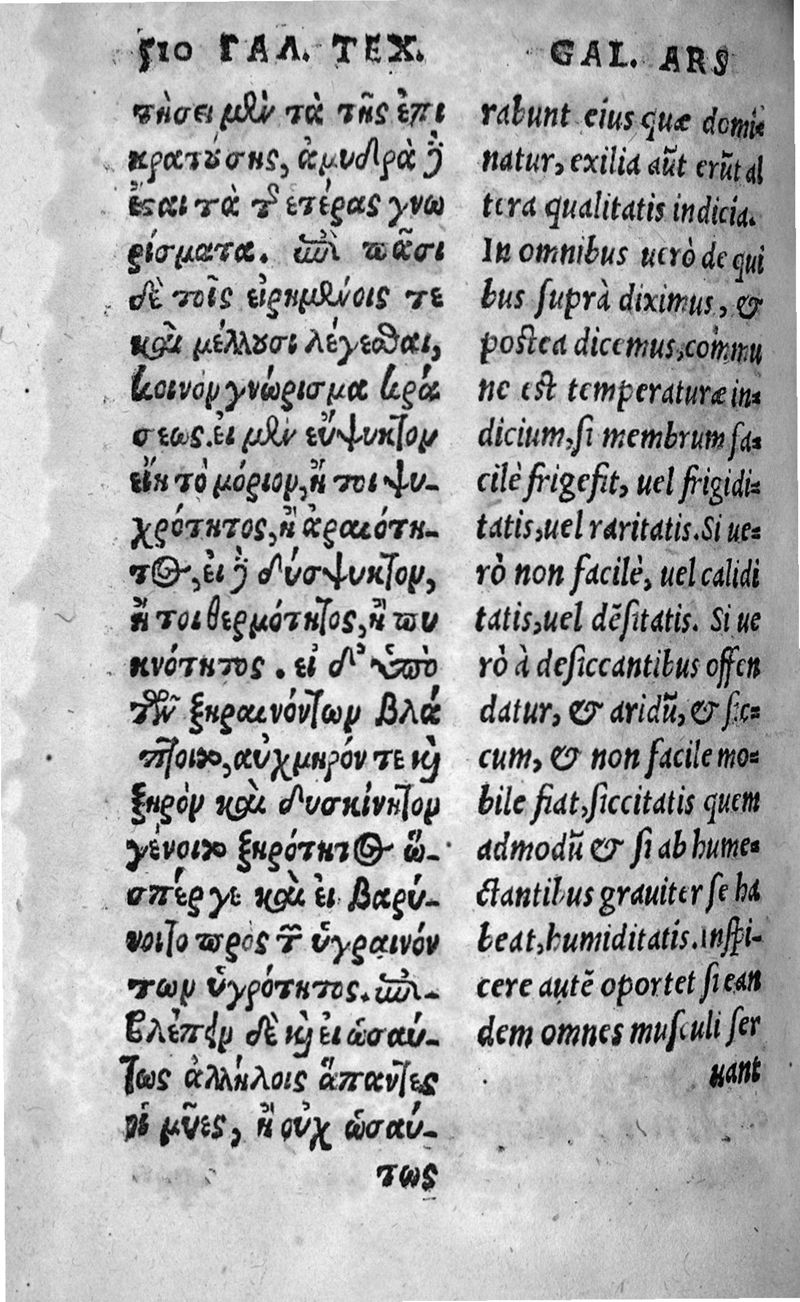 510 ΓΑΛ. ΤΕΧ.
τήσει μὲν τὰ τῆς ἐπι
κρατούσης, ἀμυδρὰ δὲ
ἔσαι τὰ τῆς ἑτέρας γνω
ρίσματα. ἐπὶ πᾶσι
δὲ τοῖς εἰρημένοις τε
καὶ μέλλουσι λέγεσθαι,
κοινὸν γνώρισμα κρά
σεως. εἰ μὲν εὔψυκτον
εἴη τὸ μόριον, ἤτοι ψυ-
χρότητος, ἢ ἀραιότη-
τος, εἰ δὲ δύσψυκτον,
ἤτοι θερμότητος, ἢ πυ
κνότητος. εἰ δ' ὑπὸ
τῶν ξηραινόντων βλά
πτοιτο, αὐχμηρόν τε καὶ
ξηρὸν καὶ δυσκίνητον
γένοιτο ξηρότητος ὥ-
σπέρ γε καὶ εἰ βαρύ-
νοιτο πρὸς τῶν ὑγραινόν
των ὑγρότητος. ἐπι-
βλέπειν δὲ καὶ εἰ ὡσαύ-
τως ἀλλήλοις ἅπαντες
οἱ μῦες, ἢ οὐχ ὡσαύ-
τως
GAL. ARS
rabunt eius quæ domi-
natur, exilia aūt erūt al
tera qualitatis indicia.
In omnibus uerò de qui
bus suprà diximus, &
postea dicemus, commu
ne est temperaturæ in-
dicium, si membrum fa-
cilè frigefit, uel frigidi-
tatis, uel raritatis. Si ue-
rò non facilè, uel calidi
tatis, uel dēsitatis. Si ue
rò à desiccantibus offen
datur, & aridū, & sic-
cum, & non facile mo-
bile fiat, siccitatis quem
admodū & si ab hume-
ctantibus grauiter se ha
beat, humiditatis. Inspi-
cere autē oportet si ean
dem omnes musculi ser
uant